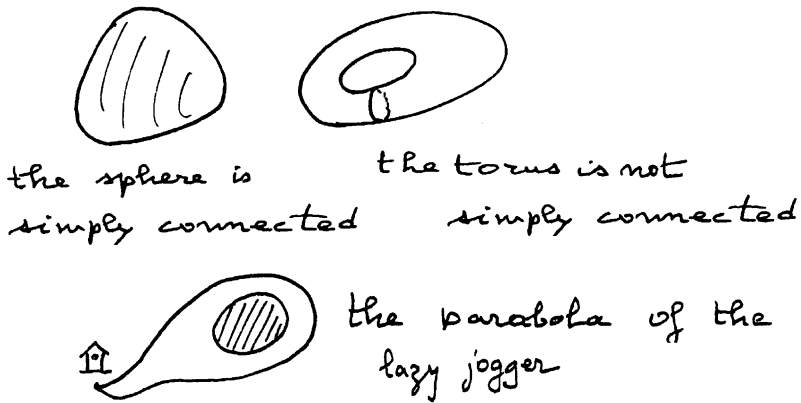 the sphere is
simply connected
the torus is not
simply connected
the parabola of the
lazy jogger